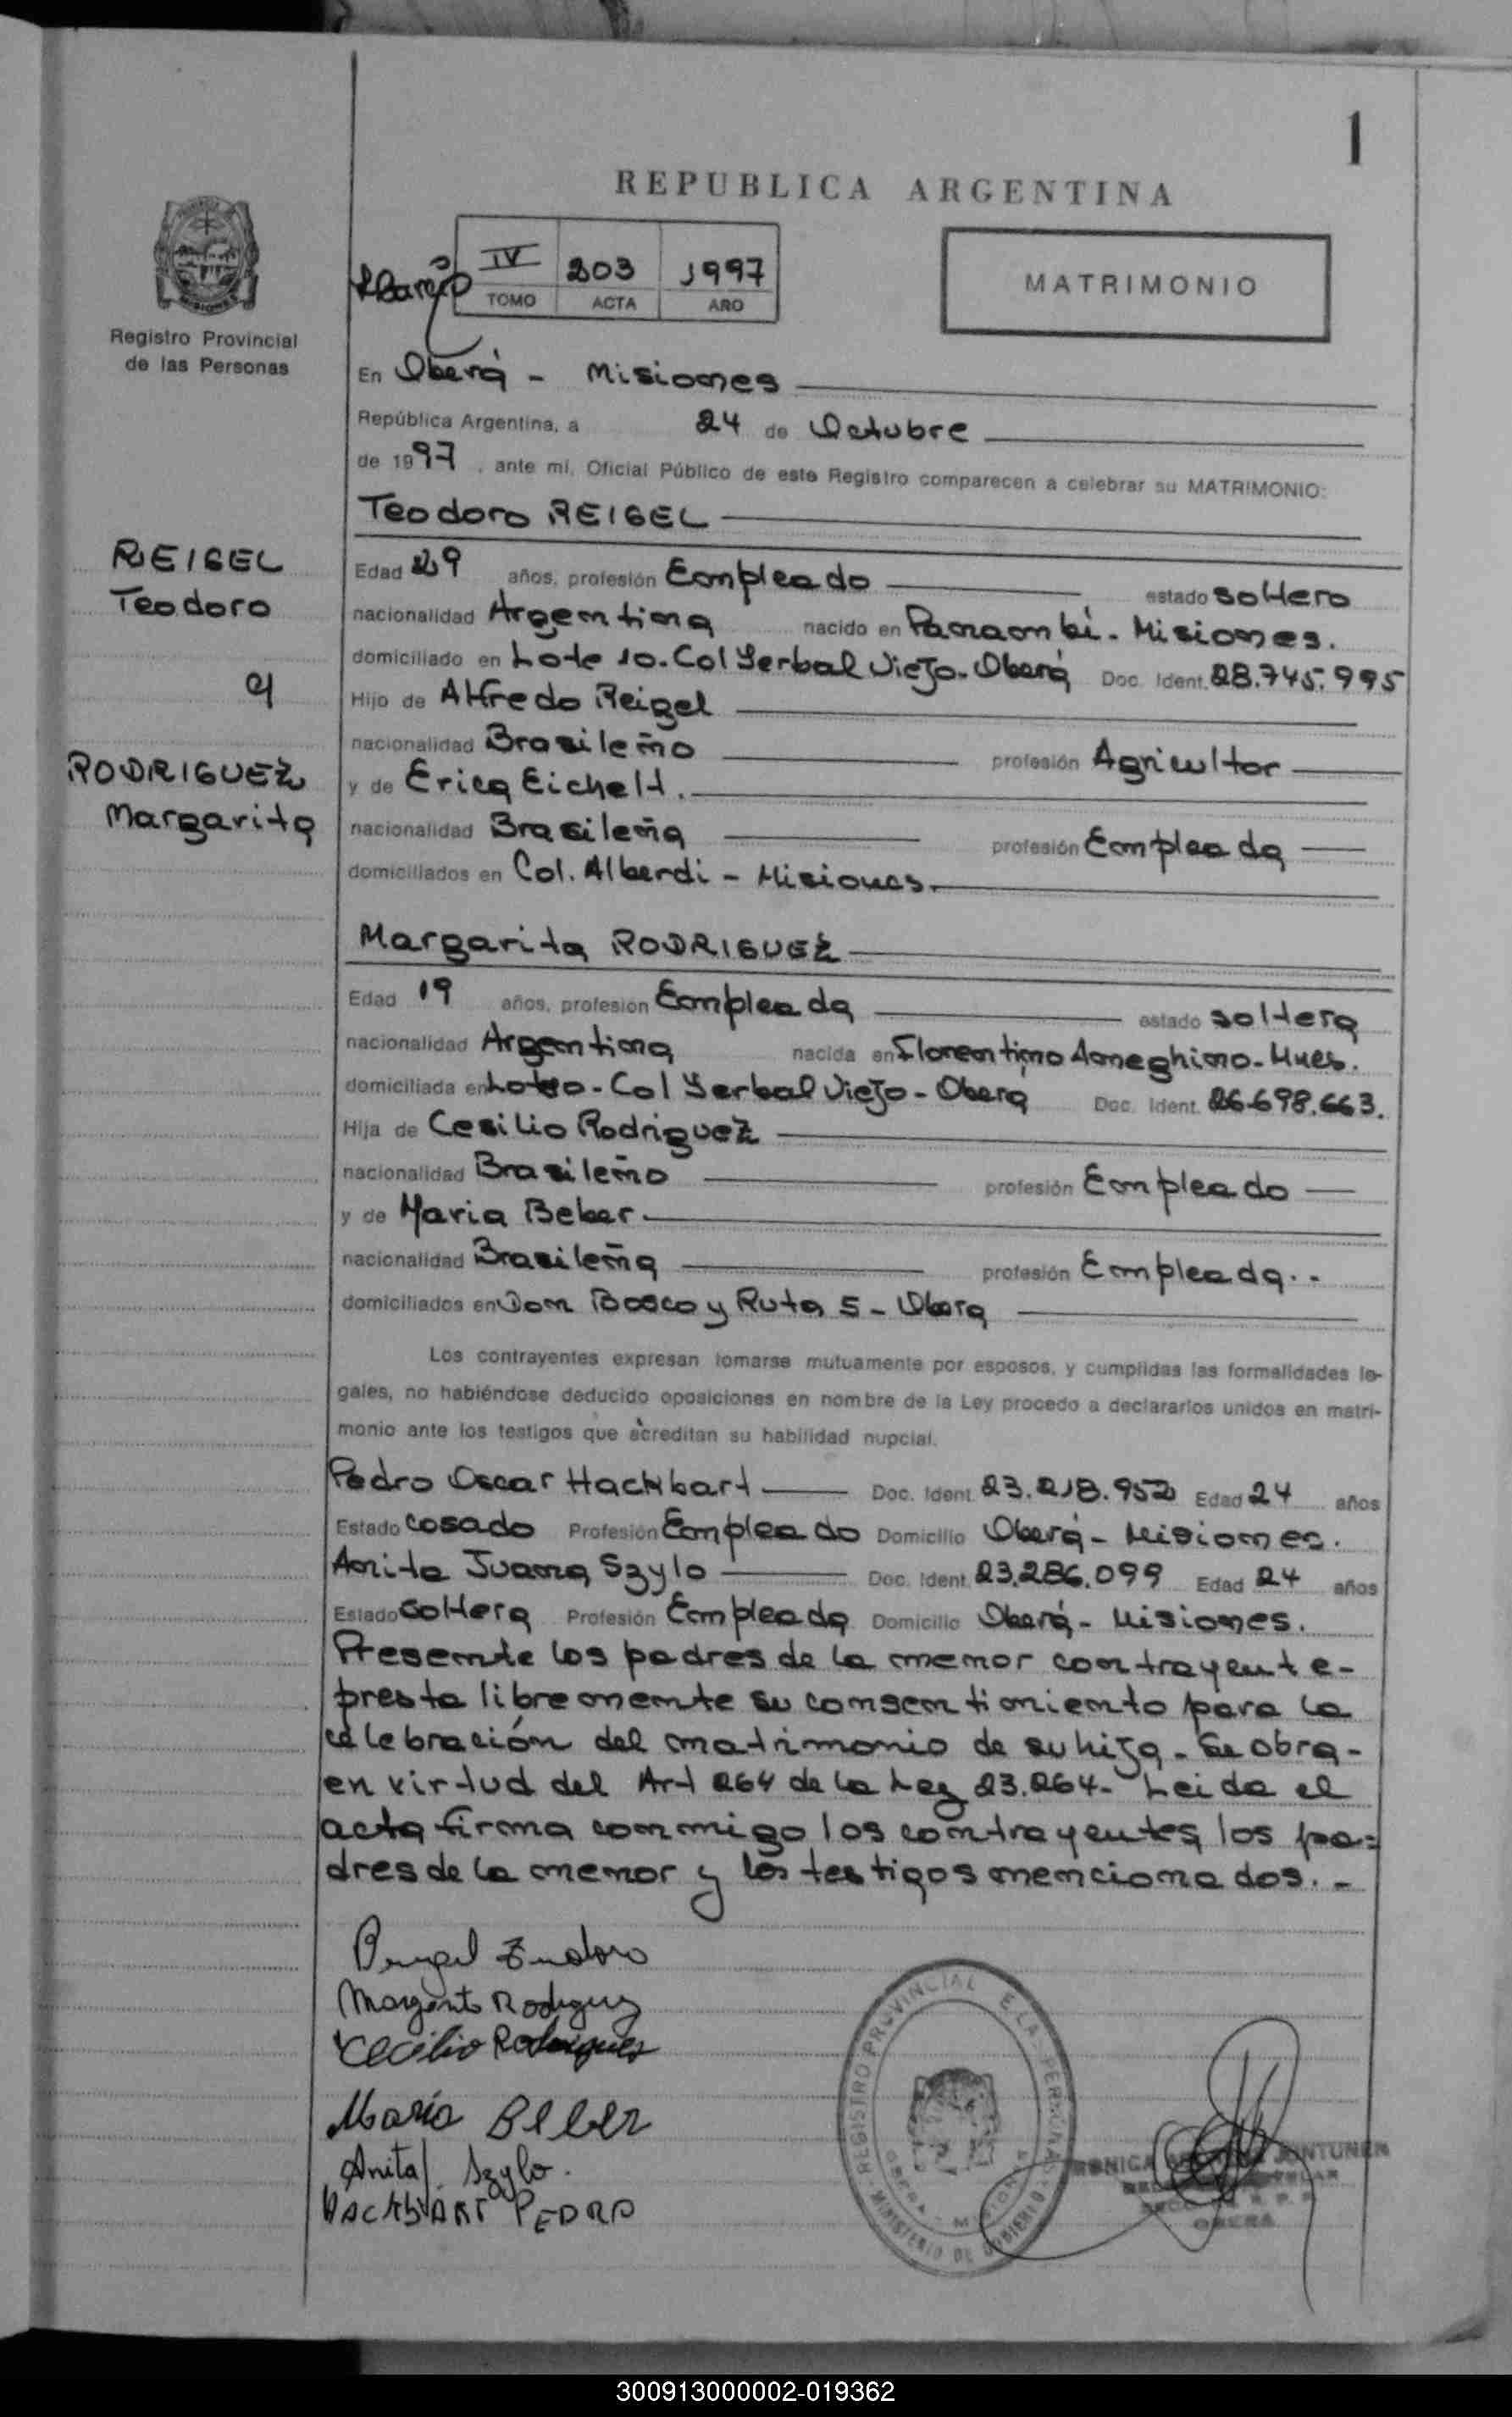 1
REPUBLICA ARGENTINA
IV 203 1997
TOMO ACTA AÑO
MATRIMONIO
Registro Provincial
de las Personas
En Oberá - Misiones
República Argentina, a 24 de Octubre
de 1997, ante mí, Oficial Público de este Registro comparecen a celebrar su MATRIMONIO:
Teodoro REIGEL
REIGEL
Teodoro
Edad 29 años, profesión Empleado estado soltero
nacionalidad Argentina nacido en Panambí - Misiones.
domiciliado en Lote 10 - Col Yerbal Viejo - Oberá Doc. Ident. 28.745.995
Hijo de Alfredo Reigel
nacionalidad Brasileño profesión Agricultor
RODRIGUEZ
Margarita
y de Erica Eichelt.
nacionalidad Brasileña profesión Empleada
domiciliados en Col. Alberdi - Misiones.
Margarita RODRIGUEZ
Edad 19 años, profesión Empleada estado soltera
nacionalidad Argentina nacida en Florentino Ameghino - Mnes.
domiciliada en Col Yerbal Viejo - Oberá Doc. Ident. 26.698.663.
Hija de Cesilio Rodriguez
nacionalidad Brasileño profesión Empleado
y de Maria Beber.
nacionalidad Brasileña profesión Empleada.-
domiciliados en Don Bosco y Ruta 5 - Oberá
Los contrayentes expresan tomarse mutuamente por esposos, y cumplidas las formalidades le-
gales, no habiéndose deducido oposiciones en nombre de la Ley procedo a declararlos unidos en matri-
monio ante los testigos que acreditan su habilidad nupcial.
Pedro Oscar Hackbart Doc. Ident. 23.218.952 Edad 24 años
Estado casado Profesión Empleado Domicilio Oberá - Misiones.
Anita Juana Szylo Doc. Ident. 23.286.099 Edad 24 años
Estado soltera Profesión Empleada Domicilio Oberá - Misiones.
Presente los padres de la menor contrayente -
presta libremente su consentimiento para la
celebración del matrimonio de su hija - Se obra -
en virtud del Art 264 de la Ley 23.264 - Leida el
acta firma conmigo los contrayentes, los pa=
dres de la menor y los testigos mencionados. -
Reigel Teodoro
Margarita Rodriguez
Cecilio Rodrigues
Maria Beber
Anita J. Szylo.
HACKBART PEDRO
REGISTRO PROVINCIAL DE LAS PERSONAS
OBERA - MISIONES
MINISTERIO DE GOBIERNO
OBERA
300913000002-019362